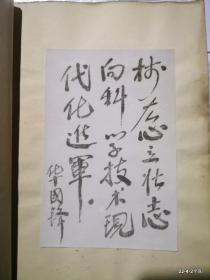 树雄心立壮志
向科学技术现
代化進軍。
华國锋